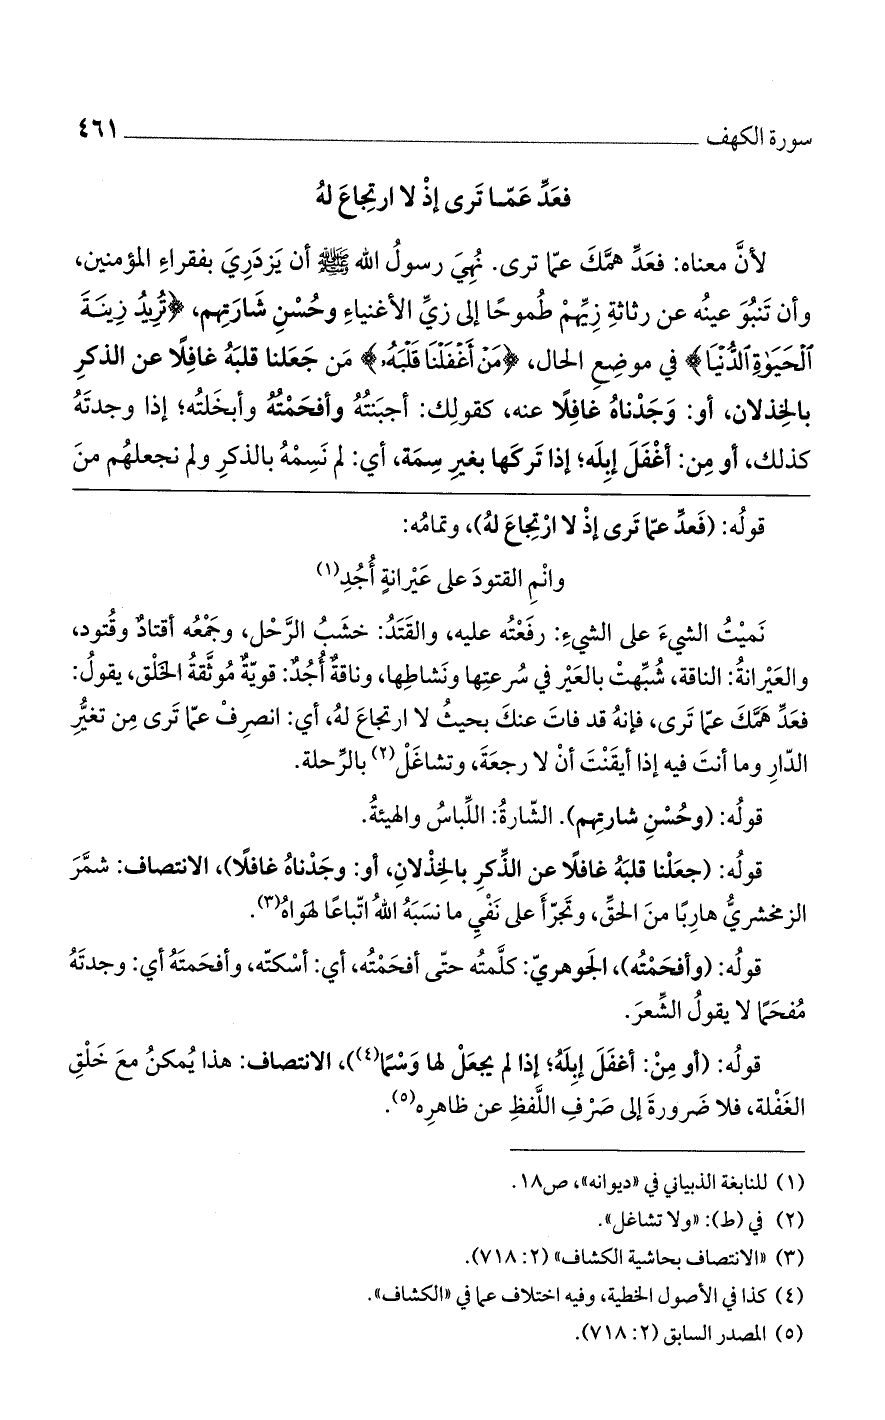 سورة الكهف ٤٦١
فعَدِّ عَمّا تَرى إذْ لا ارتِجاعَ لهُ
لأنَّ معناه: فعَدِّ همَّكَ عمّا ترى. نُهِيَ رسولُ الله ﷺ أن يَزدَرِيَ بفقراءِ المؤمنين،
وأن تَنبُوَ عينُه عن رثاثةِ زِيِّهِمْ طُموحًا إلى زيِّ الأغنياءِ وحُسْنِ شَارَتِهم، ﴿تُرِيدُ زِينَةَ
ٱلْحَيَوٰةِ ٱلدُّنْيَا﴾ في موضِعِ الحال، ﴿مَنْ أَغْفَلْنَا قَلْبَهُۥ﴾ مَن جَعَلنا قلبَهُ غافِلًا عن الذكرِ
بالخِذلان، أو: وَجَدْناهُ غافِلًا عنه، كقولِك: أجبَنتُهُ وأفحَمْتُهُ وأبخَلتُه؛ إذا وجدتَهُ
كذلك، أو مِن: أغْفَلَ إبِلَه؛ إذا تَركَها بغيرِ سِمَة، أي: لم نَسِمْهُ بالذكرِ ولم نجعلهُم منَ
قولُه: (فَعدِّ عمّا تَرى إذْ لا ارْتِجاعَ لهُ)، وتمامُه:
وانْمِ القتودَ على عَيْرانةٍ أُجُدِ(١)
نَميْتُ الشيءَ على الشيءِ: رفَعْتُه عليه، والقَتَدُ: خشَبُ الرَّحْل، وجَمْعُه أقتادٌ وقُتود،
والعَيْرانةُ: الناقة، شُبِّهتْ بالعَيْر في سُرعتِها ونَشاطِها، وناقةٌ أُجُدٌ: قويّةٌ مُوثَّقةُ الخَلْق، يقولُ:
فعَدِّ هَمَّكَ عمّا تَرى، فإنهُ قد فاتَ عنكَ بحيثُ لا ارتجاعَ لهُ، أي: انصرِفْ عمّا تَرى مِن تغيُّرِ
الدّارِ وما أنتَ فيه إذا أيقَنْتَ أنْ لا رجعَةَ، وتشاغَلْ(٢) بالرِّحلة.
قولُه: (وحُسْنِ شارتِهم). الشّارةُ: اللِّباسُ والهيئةُ.
قولُه: (جعَلْنا قلبَهُ غافلًا عن الذِّكرِ بالخِذْلانِ، أو: وجَدْناهُ غافلًا)، الانتصاف: شمَّرَ
الزمخشريُّ هارِبًا منَ الحقِّ، وتَجرّأَ على نَفْيِ ما نسَبَهُ اللهُ اتِّباعًا لهَواهُ(٣).
قولُه: (وأفحَمْتُه)، الجَوهريّ: كلَّمتُه حتّى أفحَمْتُه، أي: أسْكتّه، وأفحَمتَهُ أي: وجدتَهُ
مُفحَمًا لا يقولُ الشِّعرَ.
قولُه: (أو مِنْ: أغفَلَ إبلَهُ؛ إذا لم يجعَلْ لها وَسْمًا(٤))، الانتصاف: هذا يُمكنُ معَ خَلْقِ
الغَفْلة، فلا ضَرورةَ إلى صَرْفِ اللَّفظِ عن ظاهرِه(٥).
(١) للنابغة الذبياني في «ديوانه»، ص١٨.
(٢) في (ط): «ولا تشاغل».
(٣) «الانتصاف بحاشية الكشاف» (٢: ٧١٨).
(٤) كذا في الأصول الخطية، وفيه اختلاف عما في «الكشاف».
(٥) المصدر السابق (٢: ٧١٨).